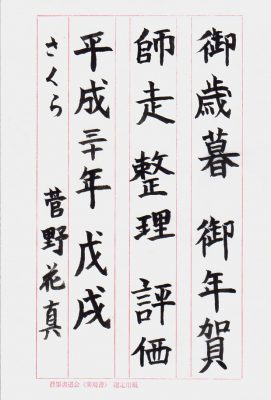 御歳暮 御年賀
師走 整理 評価
平成三十年 戊戌
さくら 菅野花真